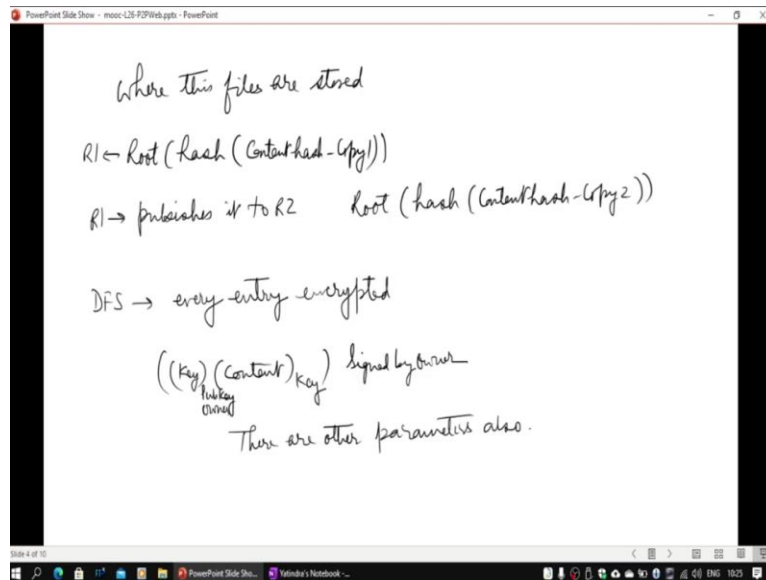 PowerPoint Slide Show - mooc-L26-P2PWeb.pptx - PowerPoint
Where this files are stored
R1 ← Root (hash (Contenthash-Copy1))
R1 → publishes it to R2 Root (hash (Contenthash-Copy2))
DFS → every entry encrypted
((Key) (Content) Key) Signed by owner
Pubkey
owner
There are other parameters also.
Slide 4 of 10
PowerPoint Slide Sho... Yatindra's Notebook -...
ENG 10:25